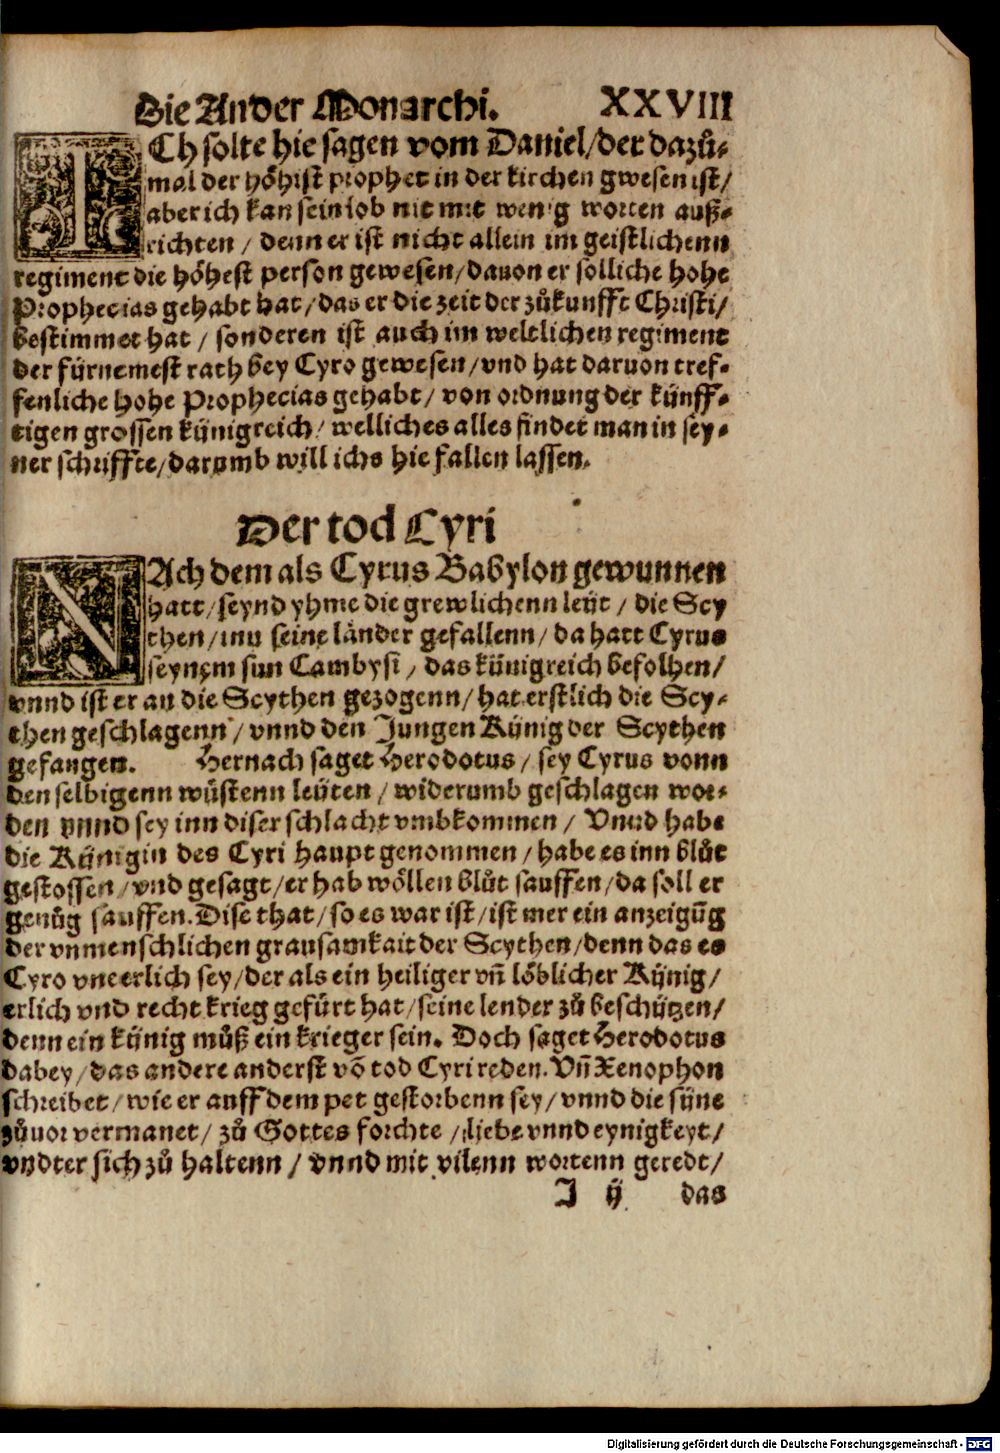 Die Ander Monarchi. XXVIII
ICh solte hie sagen vom Daniel/der dazů-
mal der höhist prophet in der kirchen gwesen ist/
aber ich kan sein lob nit mit wenig worten auß-
richten / denn er ist nicht allein im geistlichenn
regiment die höhest person gewesen/dauon er solliche hohe
Prophecias gehabt hat/das er die zeit der zůkunfft Christi/
bestimmet hat / sonderen ist auch im weltlichen regiment
der fürnemest rath bey Cyro gewesen/vnd hat daruon tref-
fenliche hohe Prophecias gehabt/ von ordnung der künff-
tigen grossen künigreich/ welliches alles findet man in sey-
ner schriffte/darumb will ichs hie fallen lassen.
Der tod Cyri
NAch dem als Cyrus Babylon gewunnen
hatt/seynd yhme die grewlichenn leüt / die Scy
then/inn seine länder gefallenn/da hatt Cyrus
seynem sun Cambysi / das künigreich befolhen/
vnnd ist er an die Scythen gezogenn/hat erstlich die Scy-
then geschlagenn / vnnd den Jungen Künig der Scythen
gefangen. Hernach saget Herodotus / sey Cyrus vonn
den selbigenn wüstenn leüten / widerumb geschlagen wor-
den vnnd sey inn diser schlacht vmbkommen / Vnnd habe
die Künigin des Cyri haupt genommen/habe es inn blůt
gestossen/vnd gesagt/er hab wöllen blůt sauffen/da soll er
genůg sauffen. Dise that/so es war ist/ist mer ein anzeigũg
der vnmenschlichen grausamkait der Scythen/denn das es
Cyro vneerlich sey/der als ein heiliger vñ löblicher Künig/
erlich vnd recht krieg gefürt hat/seine lender zů beschützen/
denn ein künig můß ein krieger sein. Doch saget Herodotus
dabey/das andere anderst võ tod Cyri reden. Vñ Xenophon
schreibet/wie er auff dem pet gestorbenn sey/vnnd die süne
zůuor vermanet/ zů Gottes forchte /liebe vnnd eynigkeyt/
vndter sich zů haltenn / vnnd mit vilenn wortenn geredt/
J ij das
Digitalisierung gefördert durch die Deutsche Forschungsgemeinschaft - DFG